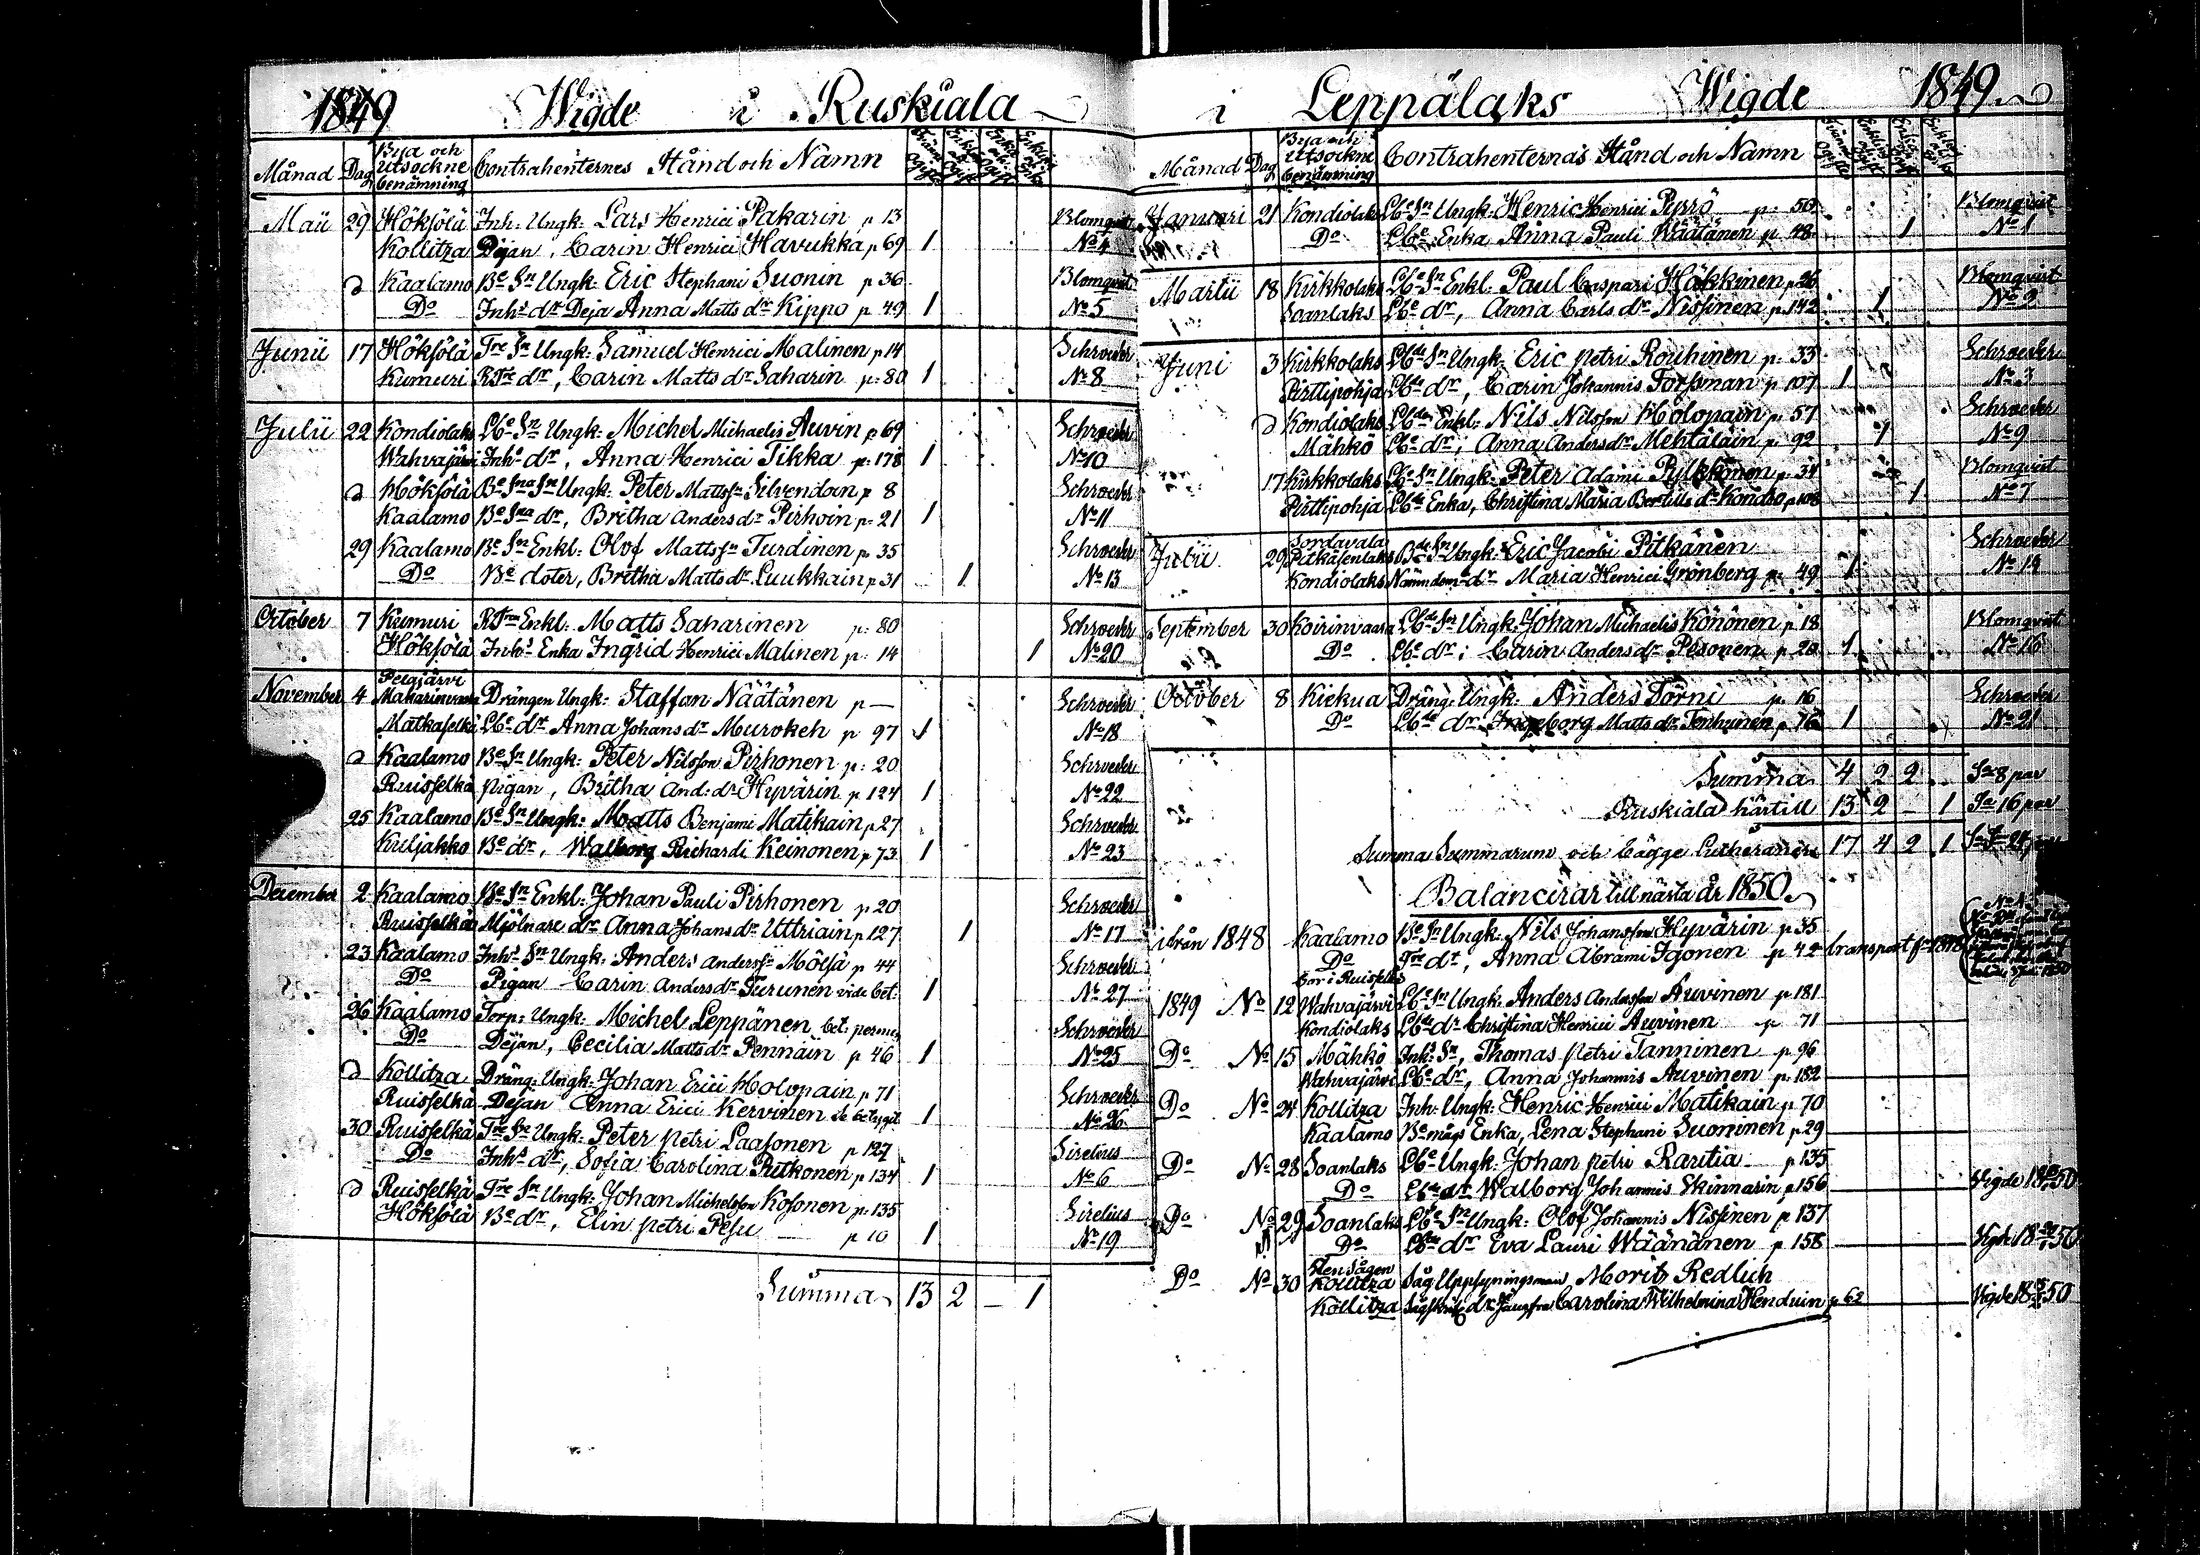 1849 Wigde i Ruskiala
Månad Dag Bya och Utsockne benämning Contrahenternes Stånd och Namn
Maii 29 Höksölä Inh: Ungk: Lars Henrici Pakarin p 13 Blomqvist
Kollitza Pigan, Carin Henrici Havukka p 69 1 No 4
d Kaalamo Be Sn Ungk: Eric Stephani Suonin p 36 Blomqvist
Do Inhs dr Deja Anna Matts dr Kippo p 49 1 No 5
Junii 17 Höksölä Tre Sn Ungk: Samuel Henrici Malinen p 14 Schroeder
Kumuri dr, Carin Matts dr Saharin p: 80 1 No 8
Julii 22 Kondiolaks Lbe Sn Ungk: Michel Michaelis Auvin p 69 Schroeder
Wahvajärvi Inhs dr, Anna Henrici Tikka p: 178 1 No 10
d Höksölä Ungk: Peter Mattss Silvendoin p 8 Schroeder
Kaalamo dr, Britha Anders dr Pirhoin p: 21 1 No 11
29 Kaalamo Be Sn Enkl: Olof Mattss Turdinen p 35 Schroeder
Do Be doter, Britha Matts dr Luukkain p 31 1 No 13
October 7 Kumuri Enkl: Matts Saharinen p: 80 Schroeder
Höksölä Inhs Enka Ingrid Henrici Malinen p: 14 1 No 20
Pelgjärvi
November 4 Drängen Ungk: Staffan Näätänen p — Schroeder
Matkaselkä Lbe dr Anna Johans dr Murokeh p 97 1 No 18
d Kaalamo Be Sn Ungk: Peter Nilsson Pirhonen p: 20 Schroeder
Ruisselkä Pigan, Britha And: dr Hyvärin p 124 1 No 22
25 Kaalamo Be Sn Ungk: Matts Benjami Matikain p 27 Schroeder
Kuljakko Be dr, Walborg Richardi Keinonen p 73 1 No 23
December 2 Kaalamo Be Sn Enkl: Johan Pauli Pirhonen p 20 Schroeder
Ruisselkä Mjölnare dr Anna Johans dr Uttriain p 127 1 No 17
23 Kaalamo Inhs Sn Ungk: Anders Anderss Mölsä p 44 Schroeder
Do Pigan Carin Anders dr Turunen vide bet: 1 No 27
26 Kaalamo Torp: Ungk: Michel Leppänen bet: Schroeder
Do Dejan, Cecilia Matts dr Pennäin p 46 1 No 25
d Kollitza Dräng: Ungk: Johan Ericii Holopain p 71 Schroeder
Ruisselkä Dejan Anna Erici Kervinen 1 No 26
30 Ruisselkä Tre Sn Ungk: Peter Petri Laasonen p 127 Sirelius
Do Inhs dr, Sofia Carolina Rutkonen p 134 1 No 6
d Ruisselkä Tre Sn Ungk: Johan Michelsson Kosonen p: 135 Sirelius
Höksölä Be dr, Elin Petri Pesu p 10 1 No 19
Summa 13 2 — 1
i Leppälaks Wigde 1849
Månad Dag Bya och Utsockne benämning Contrahenternas Stånd och Namn
Januari 21 Kondiolaks Lbe Sn Ungk: Henric Henrici Pyrrö p: 50 Blomqvist
Do Lbe Enka Anna Pauli Wäätänen p 48 1 No 1
Martii 18 Kirkkolaks Lbe Sn Enkl: Paul Caspari Häkkinen p 26 Blomqvist
Soanlaks Lbe dr, Anna Carls dr Nissinen p 142 1 No 2
Juni 3 Kirkkolaks Lbde Sn Ungk: Eric Petri Rouhinen p: 33 Schroeder
Pirttipohja Lbde dr, Carin Johannis Forsman p 107 1 No 3
d Kondiolaks Enkl: Nils Nilsson Holopain p: 57 Schroeder
Mähkö Lbe dr; Anna Anders dr Mehtälain p: 92 1 No 9
17 Kirkkolaks Lbe Sn Ungk: Peter Adami Pulkkinen p 34 Blomqvist
Pirttipohja Lbde Enka, Christina Maria Bertills dr Kondro p 108 1 No 7
Sordavala
Julii 29 Pitkäsenlaks Ungk: Eric Jacobi Pitkänen Schroeder
Kondiolaks Nämndem: dr Maria Henrici Grönberg p: 49 1 No 14
September 30 Koirinvaara Lbde Sn Ungk: Johan Michaelis Könönen p 18 Blomqvist
Do Lbe dr: Carin Anders dr Pesonen p 20 1 No 16
October 8 Kiekua Dräng: Ungk: Anders Törni p. 16 Schroeder
Do Lbde dr Ingeborg Matts dr Tenhunen p 16 1 No 21
Summa 4 2 2 Sa 8 par
Ruskiala härtill 13 2 — 1 Sa 16 par
Summa Summarum och bägge Lutheraner 17 4 2 1
Balancerar till nästa år 1850
ifrån 1848 Kaalamo Be Sn Ungk: Nils Johansson Hyvärin p 35
Do Tre dr, Anna Abrami Igonen p 42 transport fr 1848
bor i Ruisselkä
1849 No 12 Wahvajärvi Lbe Sn Ungk: Anders Andersson Auvinen p 181
Kondiolaks Lbde dr Christina Henrici Auvinen p 71
Do No 15 Mähkö Inhs Sn, Thomas Petri Tanninen p 96
Wahvajärvi Lbe dr, Anna Johannis Auvinen p: 182
Do No 24 Kollitza Inh: Ungk: Henric Henrici Matikain p 70
Kaalamo Be mågs Enka, Lena Stephani Suominen p 29
Do No 28 Soanlaks Lbe Ungk: Johan Petri Raritia p 135
Do Lbde dr Walborg Johannis Skinnarin p 156 Vigde 18 50
Do No 29 Soanlaks Lbe Sn Ungk: Olof Johannis Nissinen p 137
Do Lbde dr Eva Lauri Wäänänen p 158 Vigde 18 50
Do No 30 Kollitza Såg Uppsyningsman, Moritz Redlich
Kollitza dr Jungfru Carolina Wilhelmina Henduin p 62 Vigde 18 50